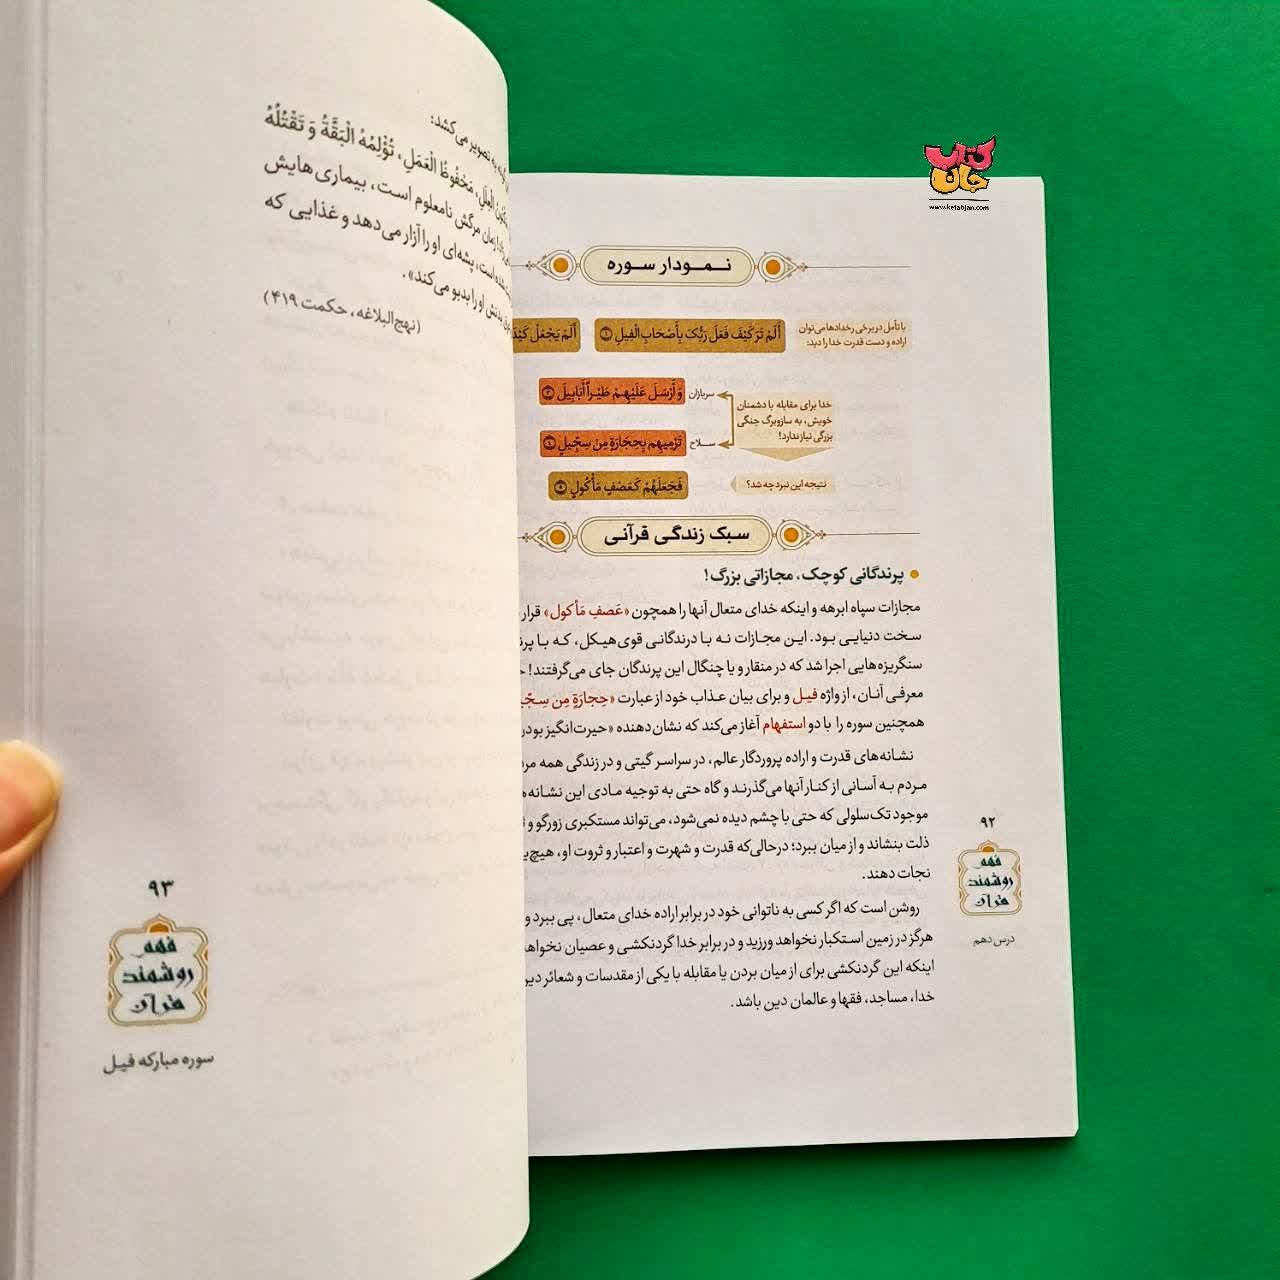 کتاب
جان
www.ketabjan.com
نمودار سوره
با تأمل در برخی رخدادها می‌توان
اراده و دست قدرت خدا را دید:
أَلَمْ تَرَ كَيْفَ فَعَلَ رَبُّكَ بِأَصْحَابِ الْفِيلِ ۱
أَلَمْ يَجْعَلْ كَيْدَ
خدا برای مقابله با دشمنان
خویش، به سازوبرگ جنگی
بزرگی نیاز ندارد!
سربازان
وَ أَرْسَلَ عَلَيْهِمْ طَيْراً أَبَابِيلَ ۳
سلاح
تَرْمِيهِم بِحِجَارَةٍ مِن سِجِّيلٍ ۴
نتیجه این نبرد چه شد؟
فَجَعَلَهُمْ كَعَصْفٍ مَأْكُولٍ ۵
سبک زندگی قرآنی
• پرندگانی کوچک، مجازاتی بزرگ!
مجازات سپاه ابرهه و اینکه خدای متعال آنها را همچون «عَصفٍ مَأکول» قرار
سخت دنیایی بود. این مجازات نه با درندگانی قوی‌هیکل، که با
سنگریزه‌هایی اجرا شد که در منقار و یا چنگال این پرندگان جای می‌گرفتند!
معرفی آنان، از واژه فیل و برای بیان عذاب خود از عبارت «حِجارَةٍ مِن
همچنین سوره را با دو استفهام آغاز می‌کند که نشان‌دهنده «حیرت‌انگیز
نشانه‌های قدرت و اراده پروردگار عالم، در سراسر گیتی و در زندگی همه
مردم به آسانی از کنار آنها می‌گذرند و گاه حتی به توجیه مادی این
موجود تک‌سلولی که حتی با چشم دیده نمی‌شود، می‌تواند مستکبری زورگو و
ذلت بنشاند و از میان ببرد؛ درحالی‌که قدرت و شهرت و اعتبار و ثروت او،
نجات دهند.
روشن است که اگر کسی به ناتوانی خود در برابر اراده خدای متعال، پی ببرد و
هرگز در زمین استکبار نخواهد ورزید و در برابر خدا گردنکشی و عصیان
اینکه این گردنکشی برای از میان بردن یا مقابله با یکی از مقدسات و شعائر
خدا، مساجد، فقها و عالمان دین باشد.
۹۲
فهم
روشمند
قرآن
درس دهم
به تصویر می‌کشد:
الْعِلَلِ، مَحْفُوظُ الْعَمَلِ، تُؤْلِمُهُ الْبَقَّةُ وَ تَقْتُلُهُ
زمان مرگش نامعلوم است، بیماری‌هایش
است، پشه‌ای او را آزار می‌دهد و غذایی که
بدنش او را بدبو می‌کند».
(نهج‌البلاغه، حکمت ۴۱۹)
۹۳
فهم
روشمند
قرآن
سوره مبارکه فیل